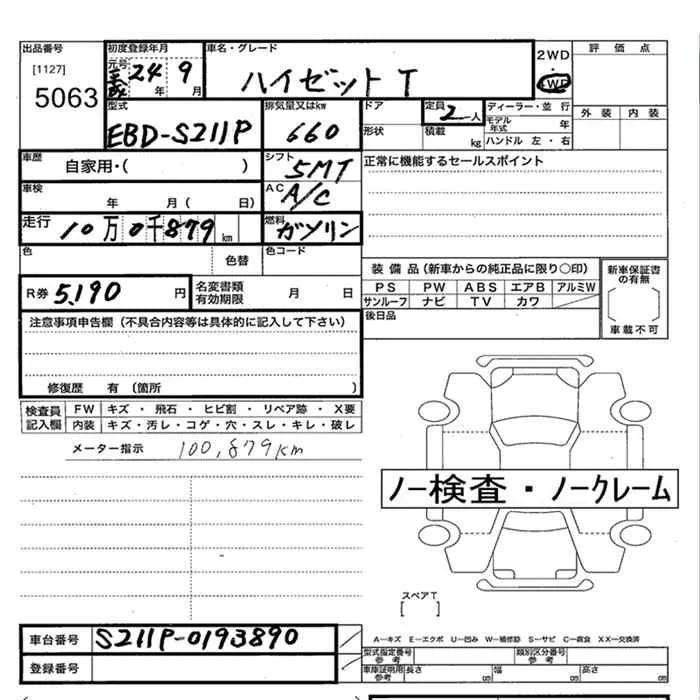 出品番号 初度登録年月 車名・グレード 2WD 評価点
[1127] 元号 24 9 ハイゼット T ・
5063 年 月 4WD
型式 排気量又はkw ドア 定員 2人 ディーラー・並 行 外装 内装
EBD-S211P 660 形状 積載 kg モデル年式 年
ハンドル 左・右
車歴 自家用・( ) シフト 5MT 正常に機能するセールスポイント
車検 年 月( 日) AC A/C
走行 10万0千879km 燃料 ガソリン
色 色替 色コード
装備品(新車からの純正品に限り○印) 新車保証書の有無
R券 5,190 円 名変書類有効期限 月 日 PS PW ABS エアB アルミW
サンルーフ ナビ TV カワ [ ]
注意事項申告欄(不具合内容等は具体的に記入して下さい) 後日品 車載不可
修復歴 有(箇所 )
検査員 FW キズ・飛石・ヒビ割・リペア跡・X要
記入欄 内装 キズ・汚レ・コゲ・穴・スレ・キレ・破レ
メーター指示 100,879km
ノー検査・ノークレーム
スペアT
[ ]
車台番号 S211P-0193890 A—キズ E—エクボ U—凹み W—補修跡 S—サビ C—腐食 XX—交換済
登録番号 型式指定番号 参考 類別区分番号 参考
車庫証明用 参考 長さ ㎝ 幅 ㎝ 高さ ㎝